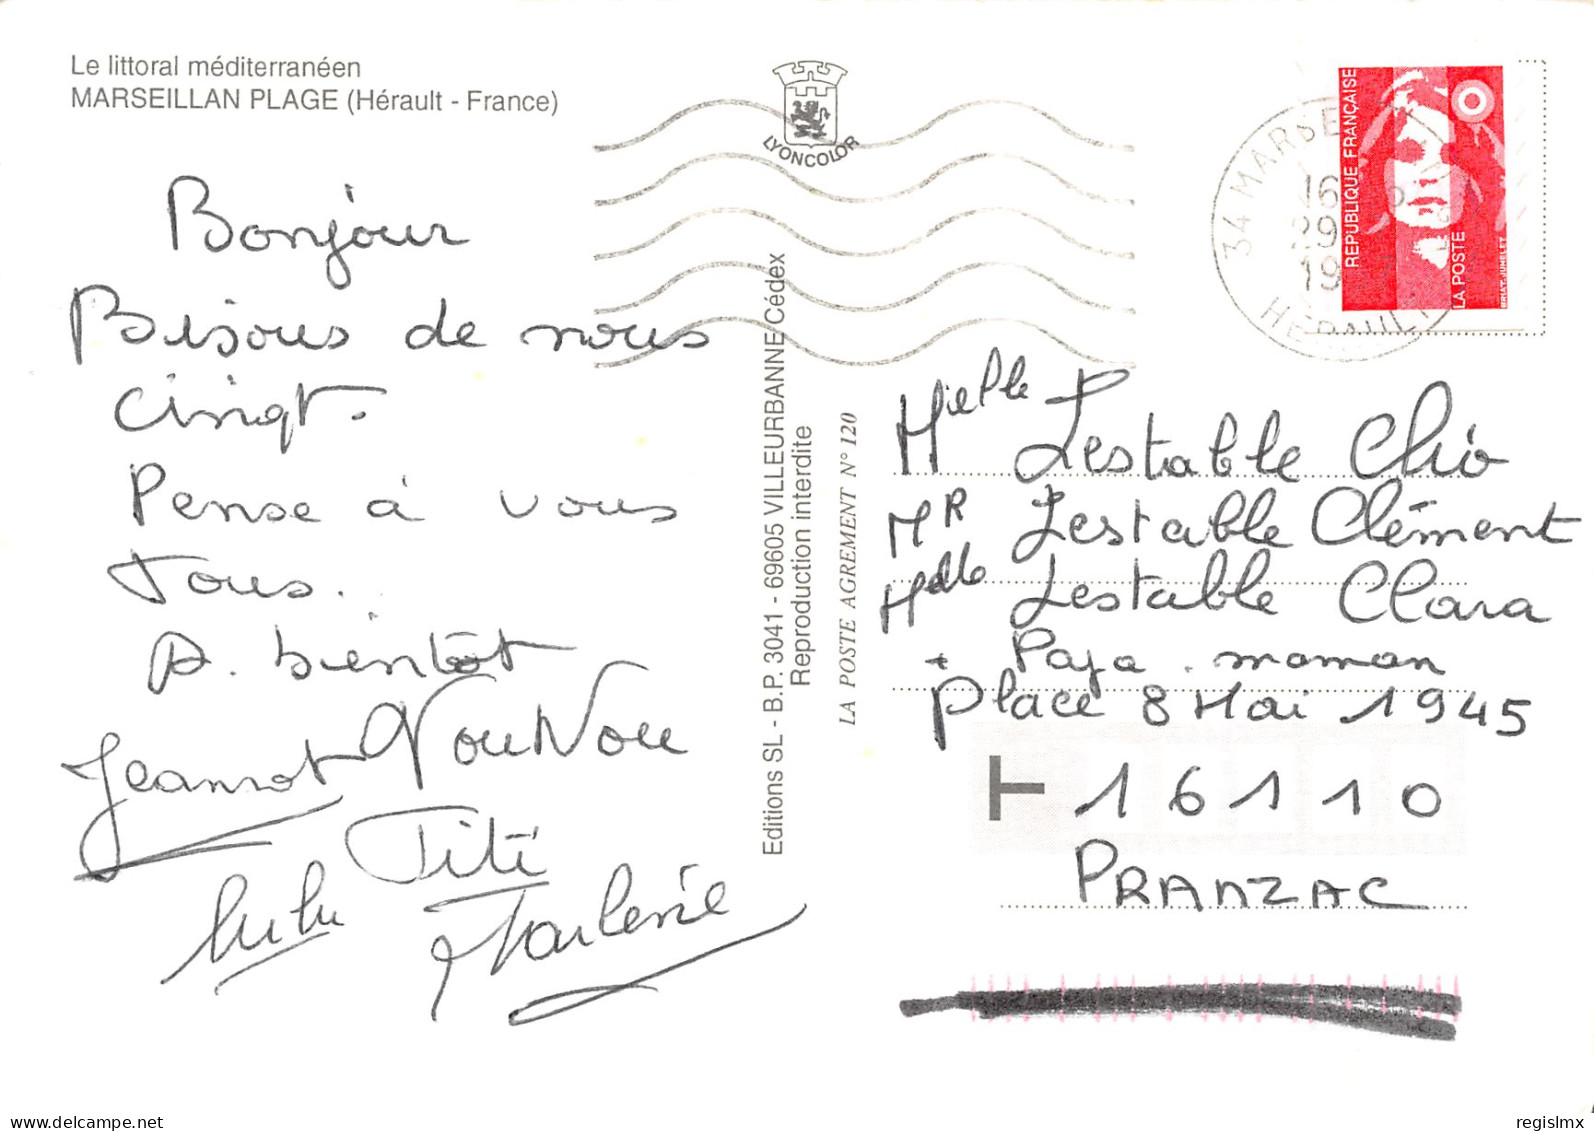 Le littoral méditerranéen
MARSEILLAN PLAGE (Hérault - France)
LYONCOLOR
Bonjour
Bisous de nous
cinqt.
Pense à vous
Tous.
A. bientôt
Jeannot NouNou
Titi
lulu Marlène
Editions SL - B.P. 3041 - 69605 VILLEURBANNE Cédex
Reproduction interdite
LA POSTE AGREMENT N° 120
34 MARSE
16
29
19
HERAULT
REPUBLIQUE FRANÇAISE
LA POSTE
BRIAT-JUMELET
Mlle Lestable Chlo
MR Lestable Clément
Mlle Lestable Clara
+ Papa . maman
Place 8 Mai 1945
16110
PRANZAC
delcampe.net
regislmx